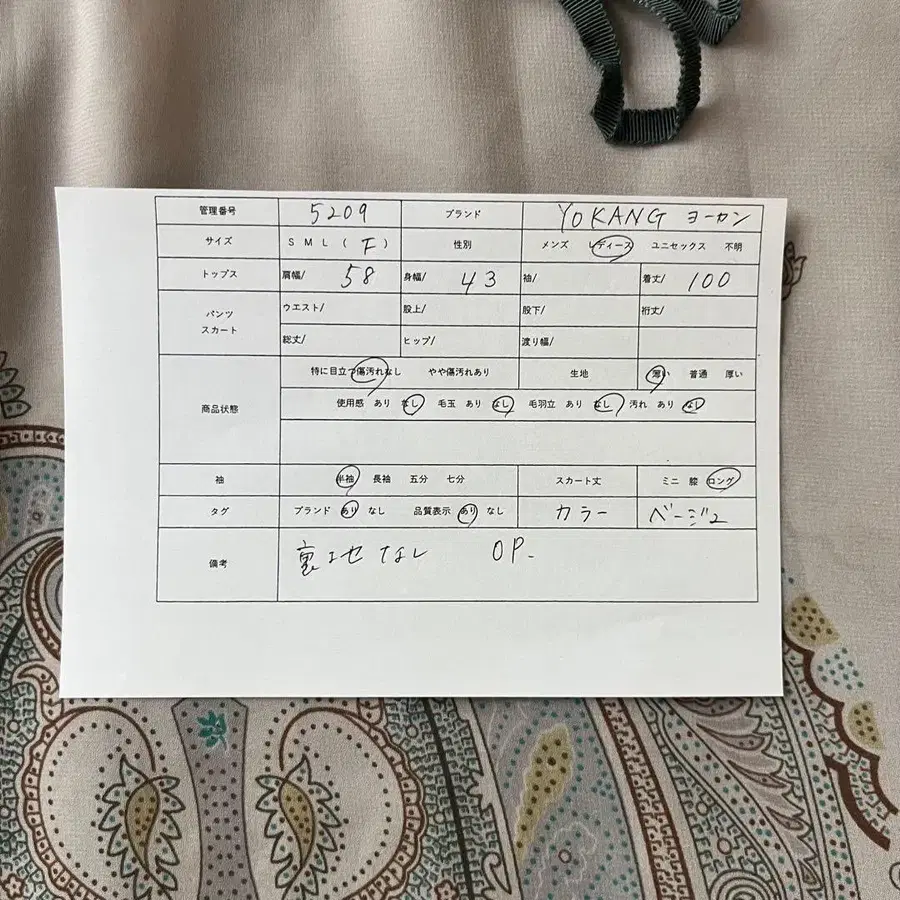 管理番号 5209 ブランド YOKANG ヨーカン
サイズ S M L ( F ) 性別 メンズ レディース ユニセックス 不明
トップス 肩幅/ 58 身幅/ 43 袖/ 着丈/ 100
パンツ スカート ウエスト/ 股上/ 股下/ 裄丈/
総丈/ ヒップ/ 渡り幅/
商品状態 特に目立つ傷汚れなし やや傷汚れあり 生地 薄い 普通 厚い
使用感 あり なし 毛玉 あり なし 毛羽立 あり なし 汚れ あり なし
袖 半袖 長袖 五分 七分 スカート丈 ミニ 膝 ロング
タグ ブランド あり なし 品質表示 あり なし カラー ベージュ
備考 裏地なし OP.